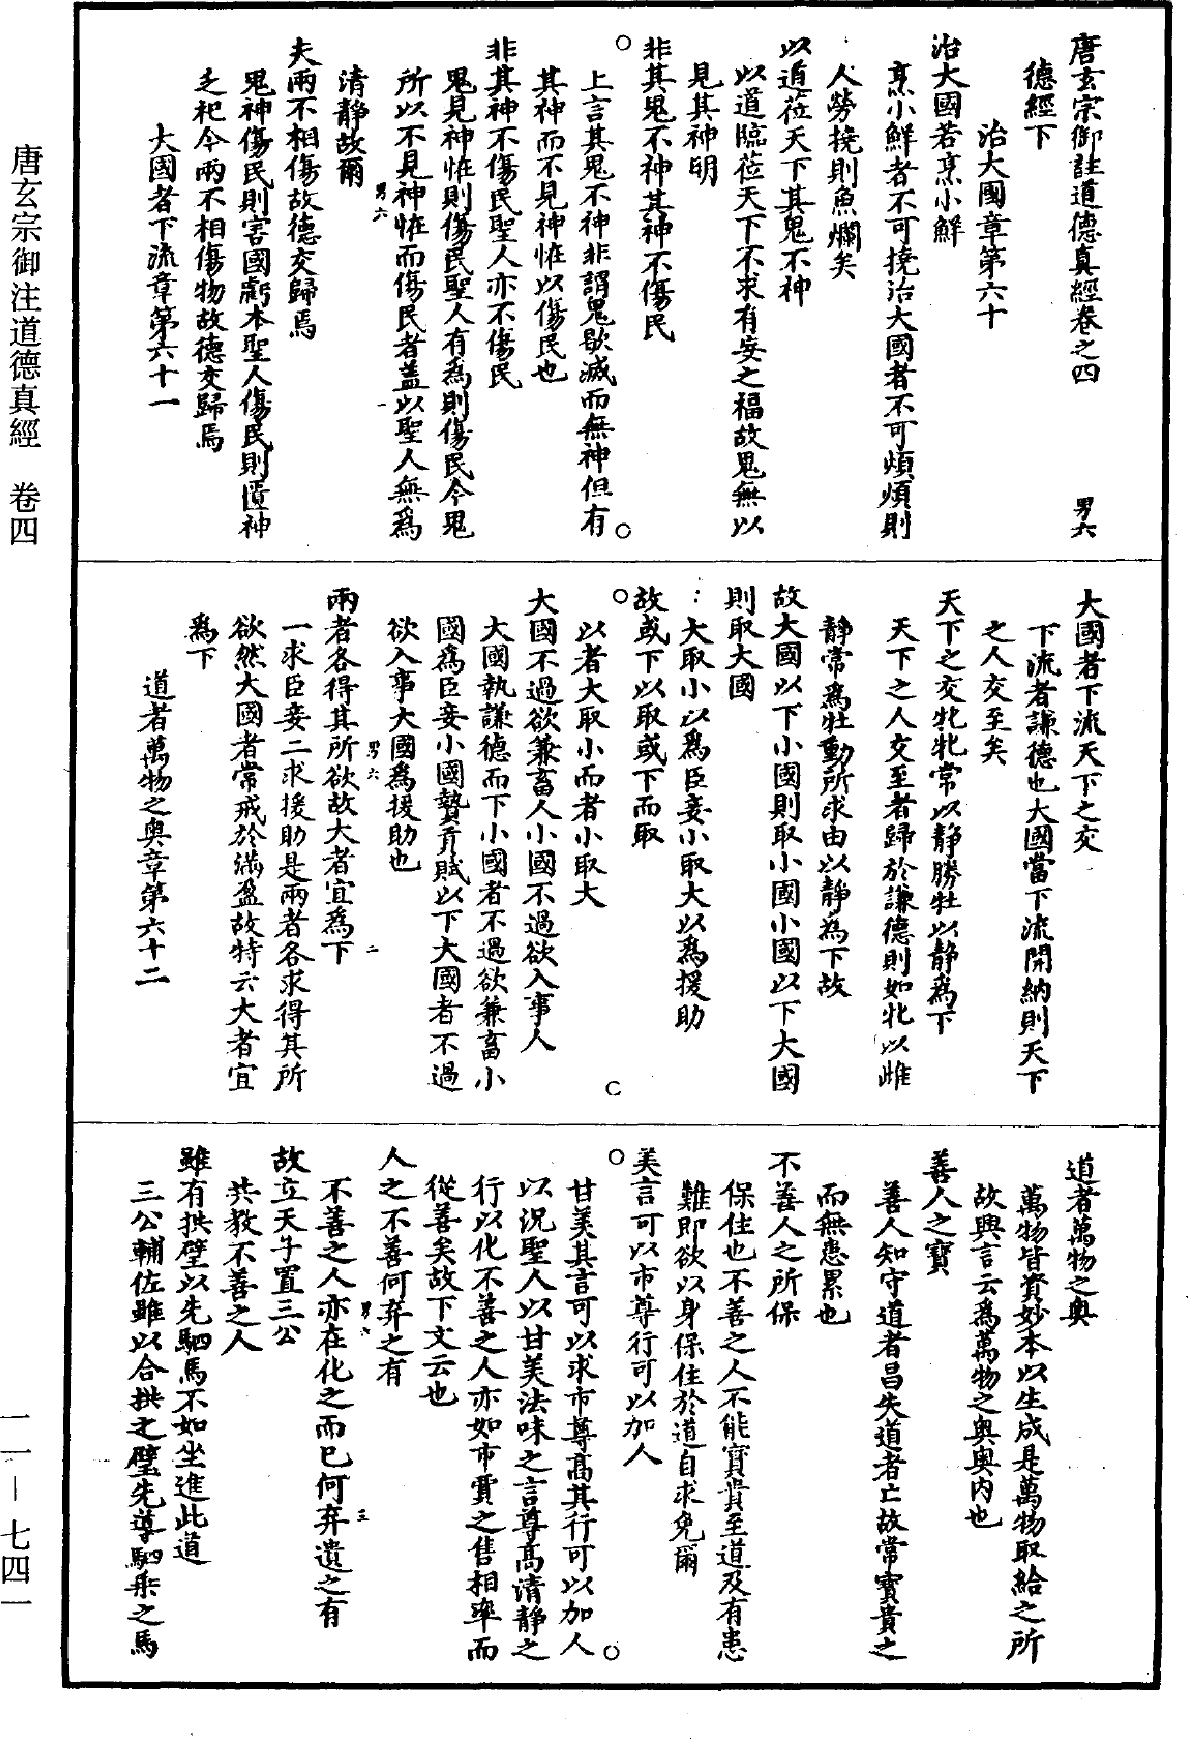 唐玄宗御註道德真經卷之四 男六
德經下
治大國章第六十
治大國若烹小鮮
烹小鮮者不可撓治大國者不可煩煩則
人勞撓則魚爛矣
以道莅天下其鬼不神
以道臨莅天下不求有妄之福故鬼無以
見其神明
非其鬼不神其神不傷民
上言其鬼不神非謂鬼歇滅而無神但有
其神而不見神恠以傷民也
非其神不傷民聖人亦不傷民
鬼見神恠則傷民聖人有為則傷民今鬼
所以不見神恠而傷民者蓋以聖人無為
清靜故爾
男六 一
夫兩不相傷故德交歸焉
鬼神傷民則害國虧本聖人傷民則匱神
乏祀今兩不相傷物故德交歸焉
大國者下流章第六十一
大國者下流天下之交
下流者謙德也大國當下流開納則天下
之人交至矣
天下之交牝牝常以靜勝牡以靜為下
天下之人交至者歸於謙德則如牝以雌
靜常為牡動所求由以靜為下故
故大國以下小國則取小國小國以下大國
則取大國
大取小以為臣妾小取大以為援助
故或下以取或下而取
以者大取小而者小取大
大國不過欲兼畜人小國不過欲入事人
大國執謙德而下小國者不過欲兼畜小
國為臣妾小國贄貢賦以下大國者不過
欲入事大國為援助也
男六 二
兩者各得其所欲故大者宜為下
一求臣妾二求援助是兩者各求得其所
欲然大國者常戒於滿盈故特云大者宜
為下
道者萬物之奧章第六十二
道者萬物之奧
萬物皆資妙本以生成是萬物取給之所
故興言云為萬物之奧奧內也
善人之寶
善人知守道者昌失道者亡故常寶貴之
而無患累也
不善人之所保
保住也不善之人不能寶貴至道及有患
難即欲以身保住於道自求免爾
美言可以市尊行可以加人
甘美其言可以求市尊高其行可以加人
以況聖人以甘美法味之言尊高清靜之
行以化不善之人亦如市賈之售相率而
從善矣故下文云也
人之不善何弃之有
不善之人亦在化之而已何弃遺之有
男六 三
故立天子置三公
共教不善之人
雖有拱璧以先駟馬不如坐進此道
三公輔佐雖以合拱之璧先導駟乘之馬
唐玄宗御注道德真經 卷四
一一—七四一